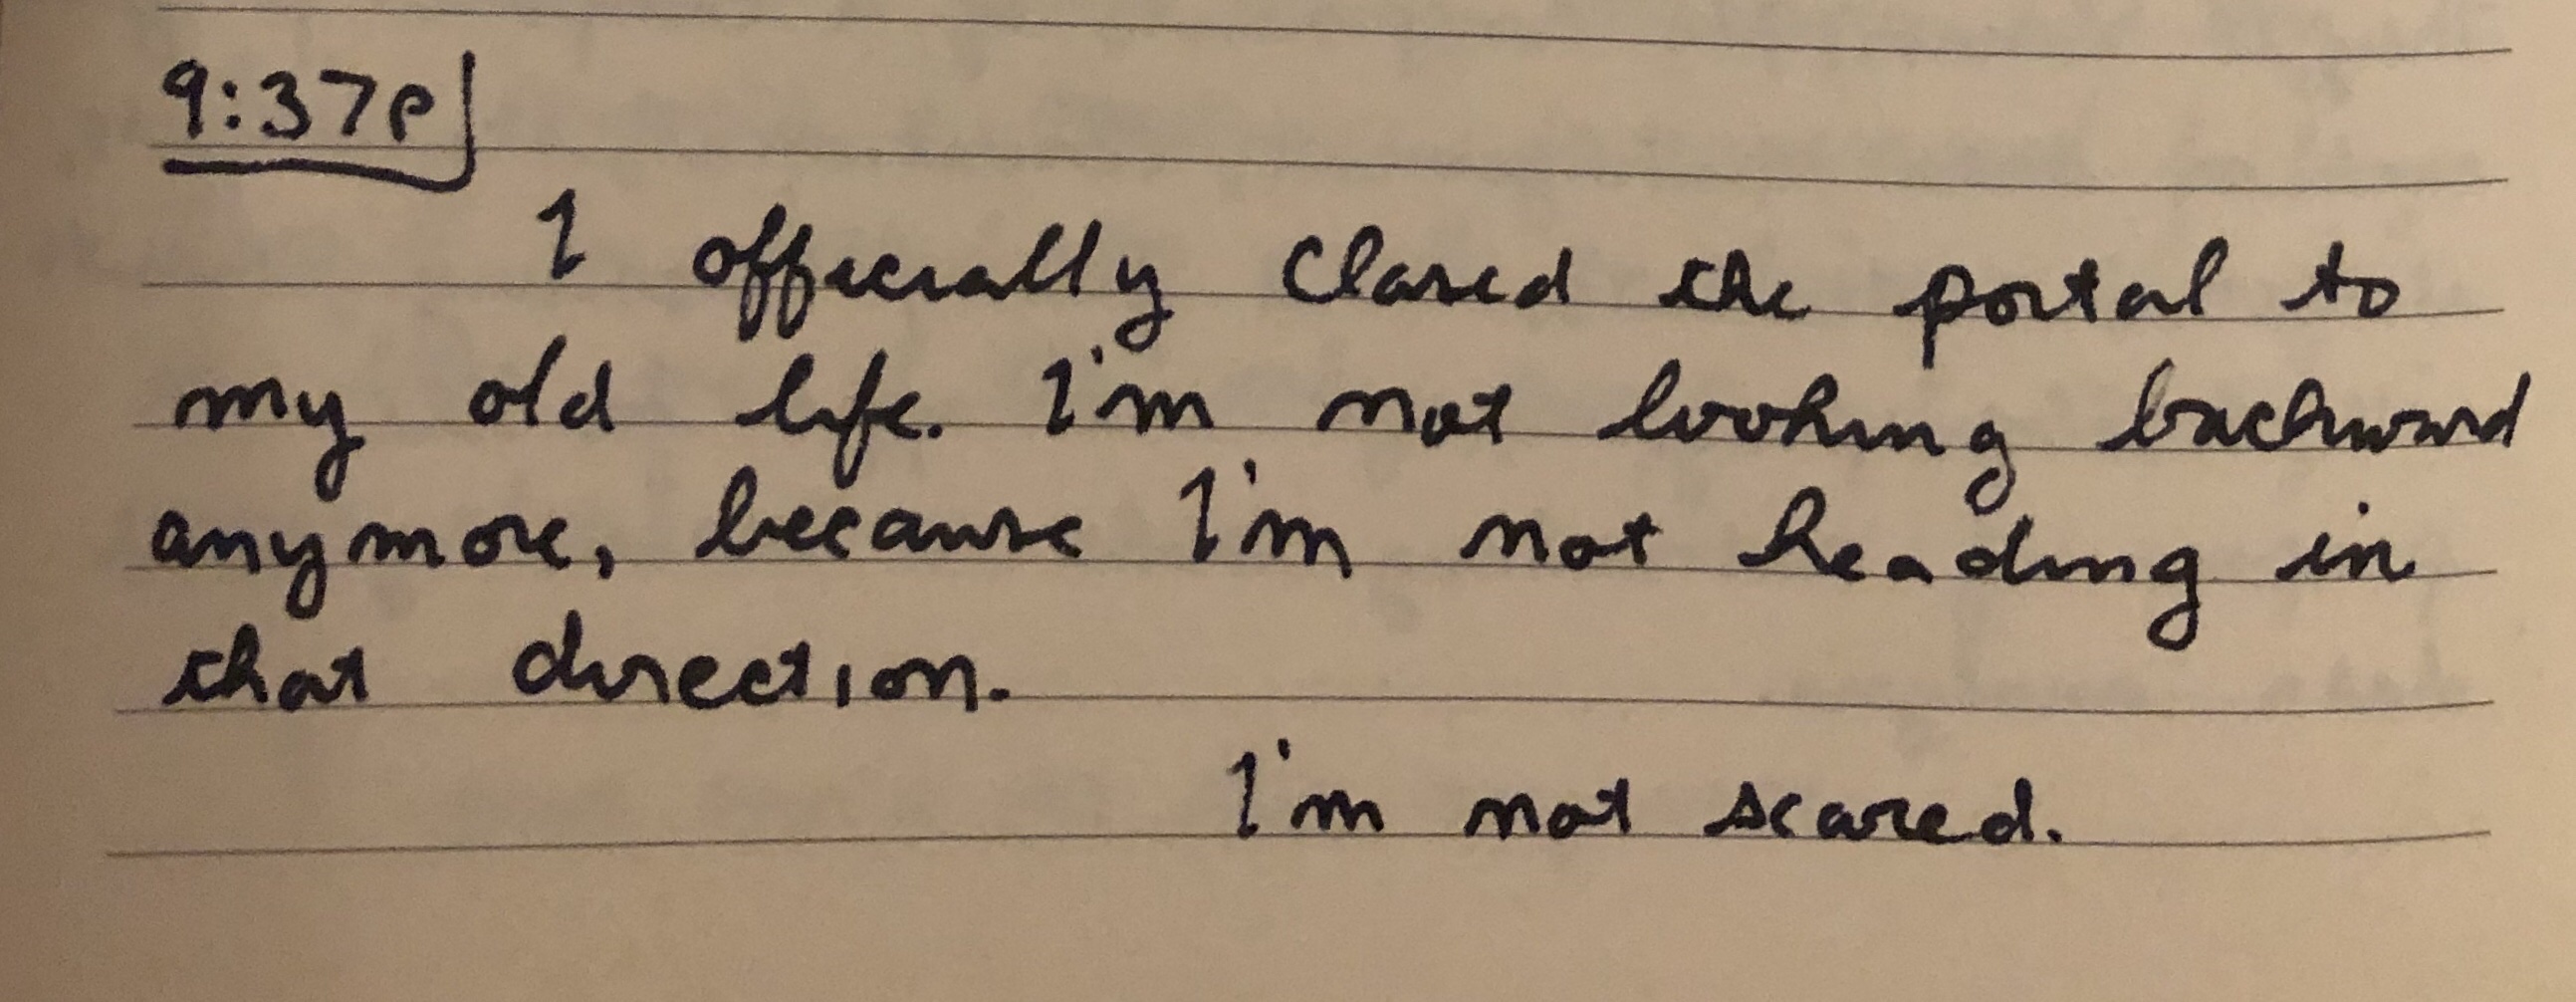 9:37p
I officially closed the portal to
my old life. I'm not looking backward
anymore, because I'm not heading in
that direction.
I'm not scared.